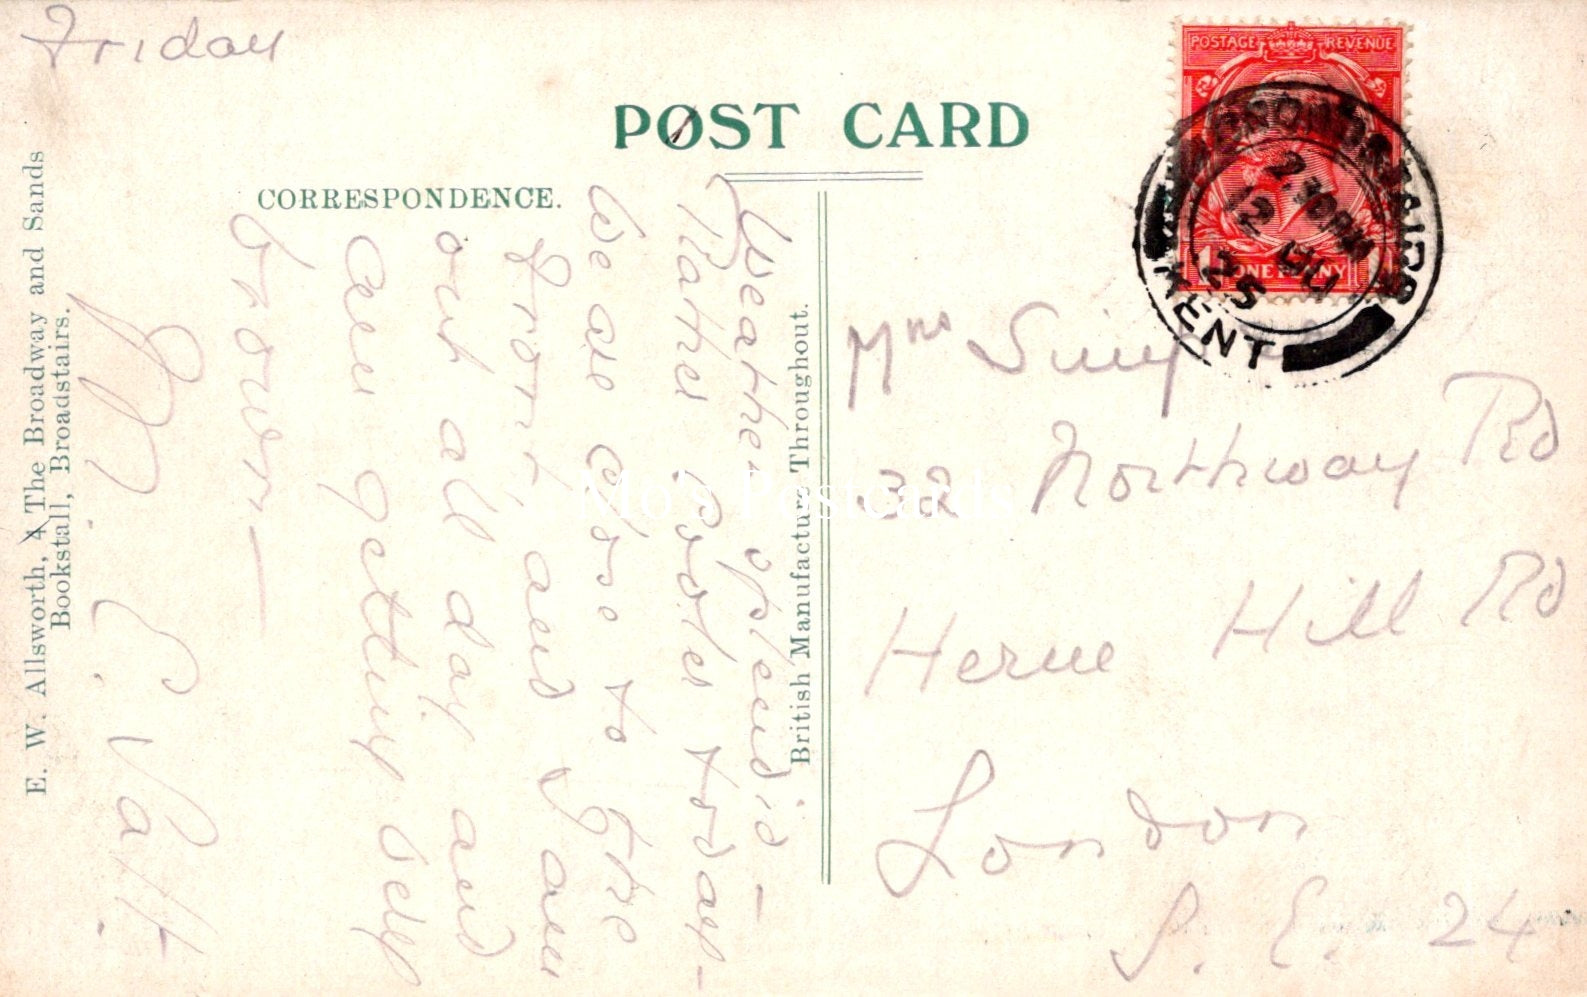 Friday
POST CARD
CORRESPONDENCE.
Weather splendid –
Rather cooler today –
We are close to the
front and I am
out all day and
am getting very
brown –
M. E. Patt.
E. W. Allsworth, 4 The Broadway and Sands
Bookstall, Broadstairs.
British Manufacture Throughout.
POSTAGE REVENUE
ONE PENNY
BROADSTAIRS
2.10PM
12 JU
25
KENT
Mrs
32 Northway Rd
Herne Hill Rd
London
S. E. 24
Mo's Postcards